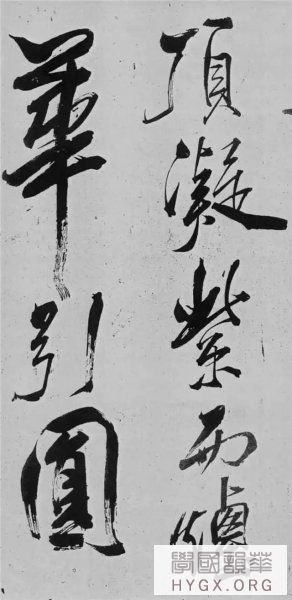 頂凝紫而
華引圓
華韻國學
HYGX.ORG